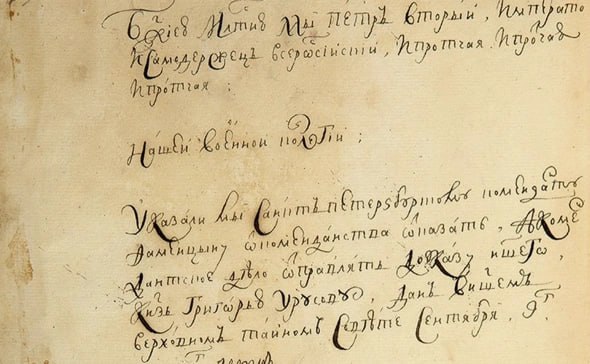 Бжиею млтию мы Петръ вторыи, Императо
и самодержецъ всеросиискии, и протчая и протчая
и протчая:
Нашеи военнои колегии:
Указали мы Санктъ петерзбурскому коменданту
от комендантства отказать, а коме
дантское дѣло отправлять до указу ншего,
Кнзь Григорью Урусову, Данъ в ншемъ
верховномъ таиномъ Советѣ Сентября, 9г